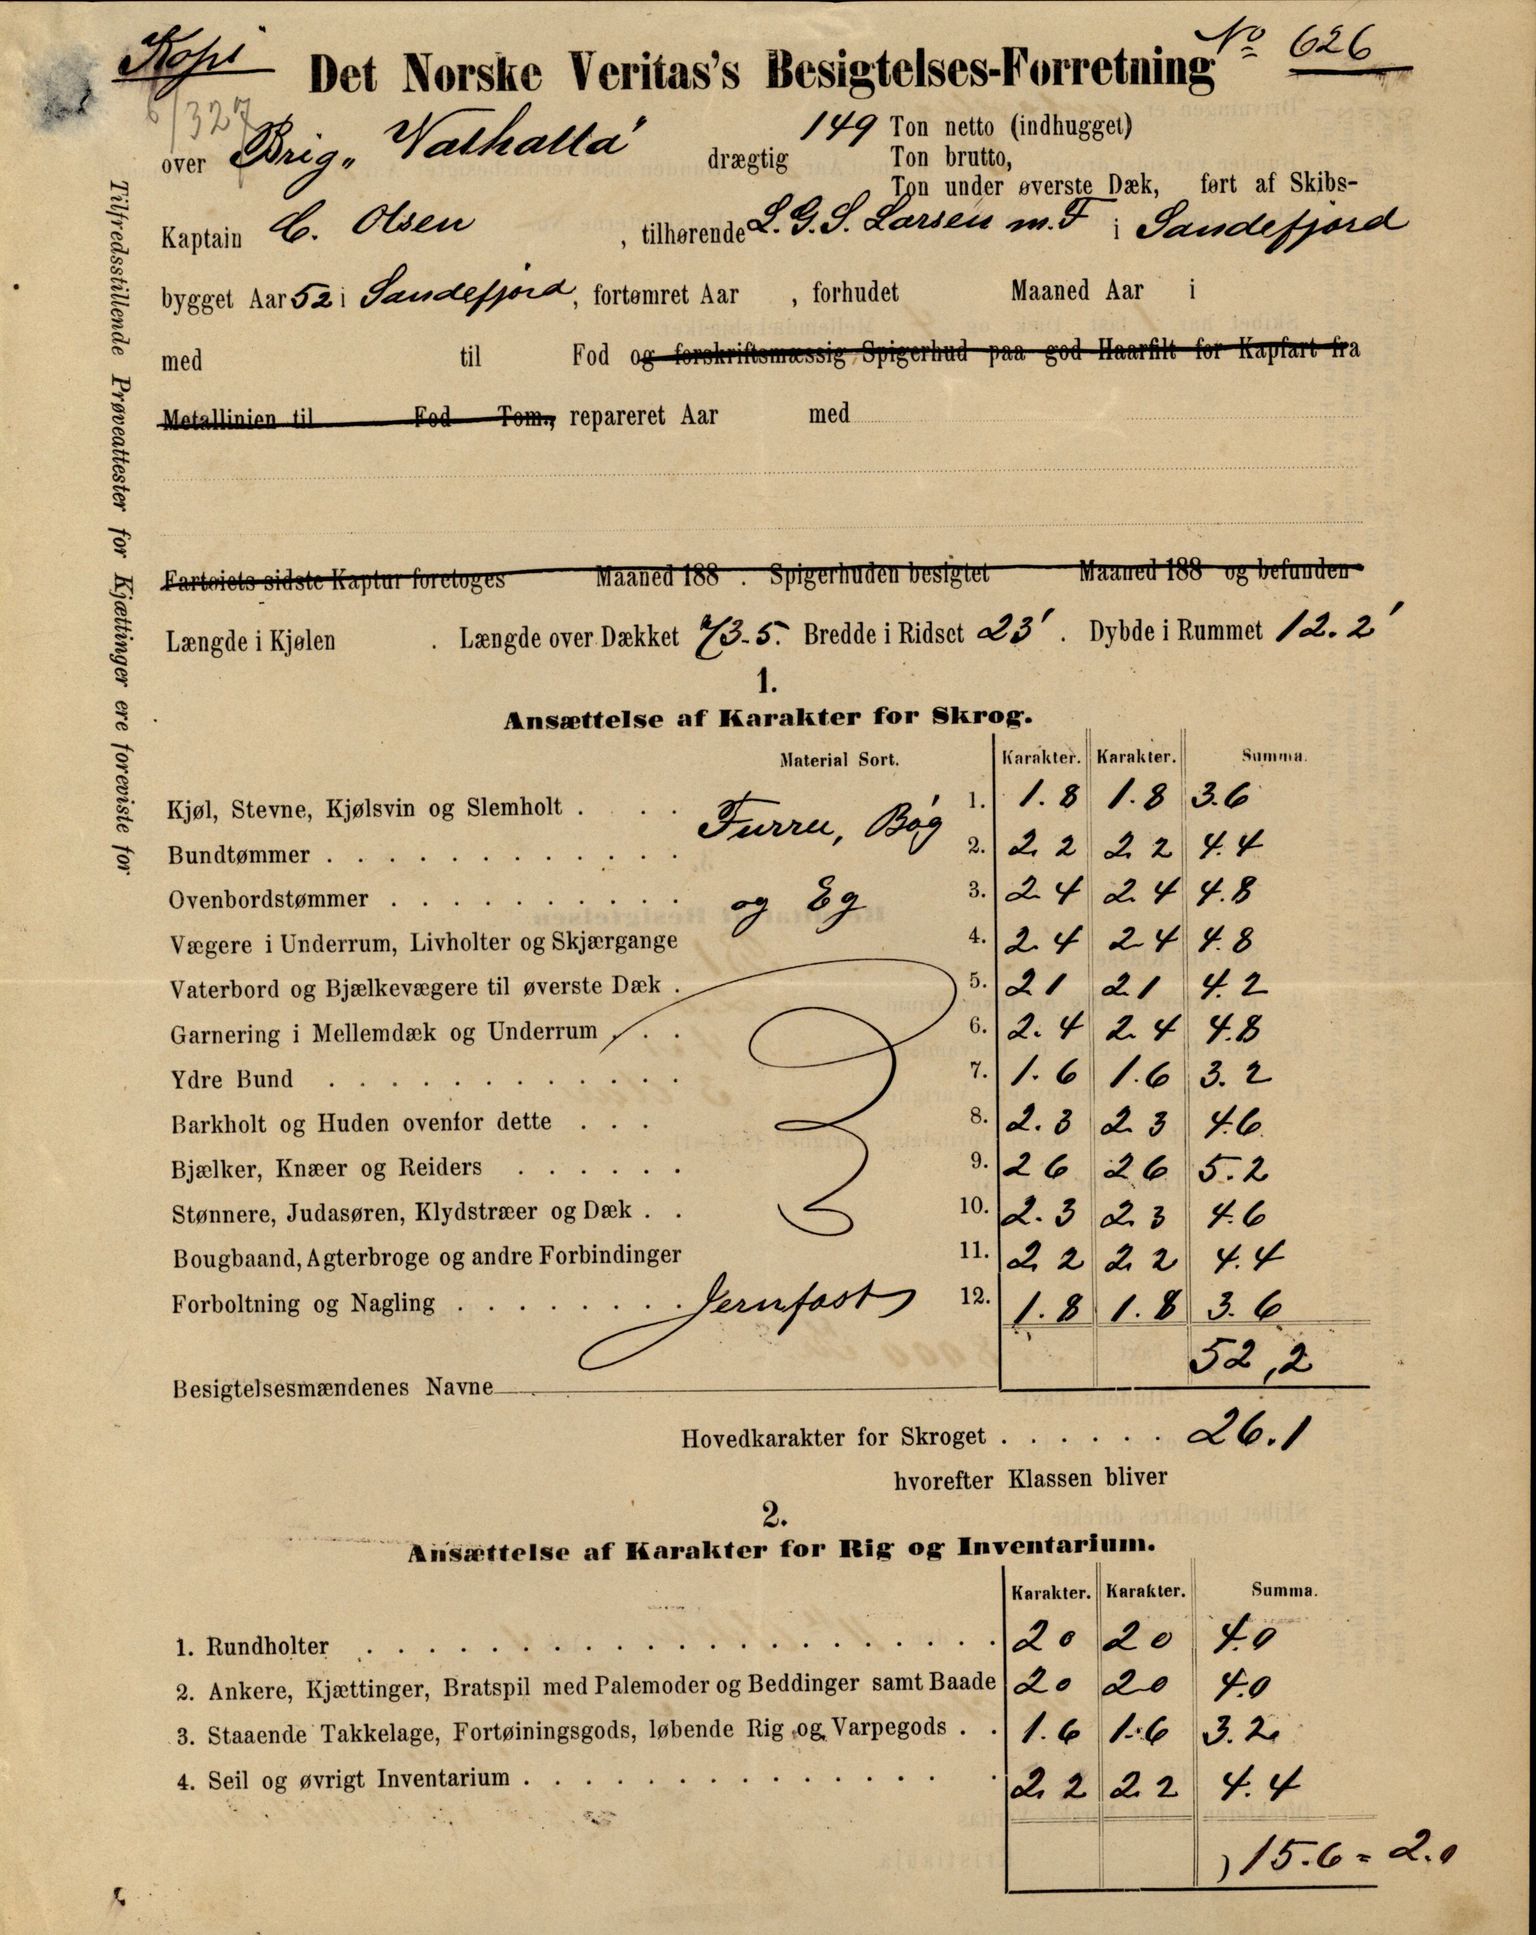 Kopi
Det Norske Veritas's Besigtelses-Forretning No 626
6/327
over Brig „Valhalla" drægtig 149 Ton netto (indhugget)
Ton brutto,
Ton under øverste Dæk, ført af Skibs-
Kaptain C. Olsen, tilhørende L. G. S. Larsen m. F i Sandefjord
bygget Aar 52 i Sandefjord, fortømret Aar , forhudet Maaned Aar i
med til Fod og forskriftsmæssig Spigerhud paa god Haarfilt for Kapfart fra
Metallinien til Fod Tom., repareret Aar med
Fartøiets sidste Kaptur foretoges Maaned 188 . Spigerhuden besigtet Maaned 188 og befunden
Længde i Kjølen . Længde over Dækket 73.5. Bredde i Ridset 23'. Dybde i Rummet 12.2'
1.
Ansættelse af Karakter for Skrog.
Material Sort. Karakter. Karakter. Summa.
Kjøl, Stevne, Kjølsvin og Slemholt . . . Furru, Bøg 1. 1.8 1.8 3.6
Bundtømmer . . . . . . . . . . . . 2. 2.2 2.2 4.4
Ovenbordstømmer . . . . . . . . . . og Eg 3. 2.4 2.4 4.8
Vægere i Underrum, Livholter og Skjærgange 4. 2.4 2.4 4.8
Vaterbord og Bjælkevægere til øverste Dæk . 5. 21 21 4.2
Garnering i Mellemdæk og Underrum . . . 6. 2.4 2.4 4.8
Ydre Bund . . . . . . . . . . . . 7. 1.6 1.6 3.2
Barkholt og Huden ovenfor dette . . . 8. 2.3 2.3 4.6.
Bjælker, Knæer og Reiders . . . . . . 9. 26 26 5.2
Stønnere, Judasøren, Klydstræer og Dæk . . 10. 2.3 2.3 4.6
Bougbaand, Agterbroge og andre Forbindinger 11. 2.2 2.2 4.4
Forboltning og Nagling . . . . . . . . Jernfast 12. 1.8 1.8 3.6
52,2
Besigtelsesmændenes Navne
Hovedkarakter for Skroget . . . . . . 26.1
hvorefter Klassen bliver
2.
Ansættelse af Karakter for Rig og Inventarium.
Karakter. Karakter. Summa.
1. Rundholter . . . . . . . . . . . . . . . . . . . . . 20 20 4.0
2. Ankere, Kjættinger, Bratspil med Palemoder og Beddinger samt Baade 20 20 4.0
3. Staaende Takkelage, Fortøiningsgods, løbende Rig og Varpegods . . 1.6 1.6 3.2
4. Seil og øvrigt Inventarium . . . . . . . . . . . . . . . 2.2 2.2 4.4
15.6 = 2.0
Tilfredsstillende Prøveattester for Kjættinger ere foreviste for